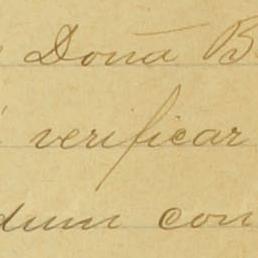 Doña B
verificar
dum con